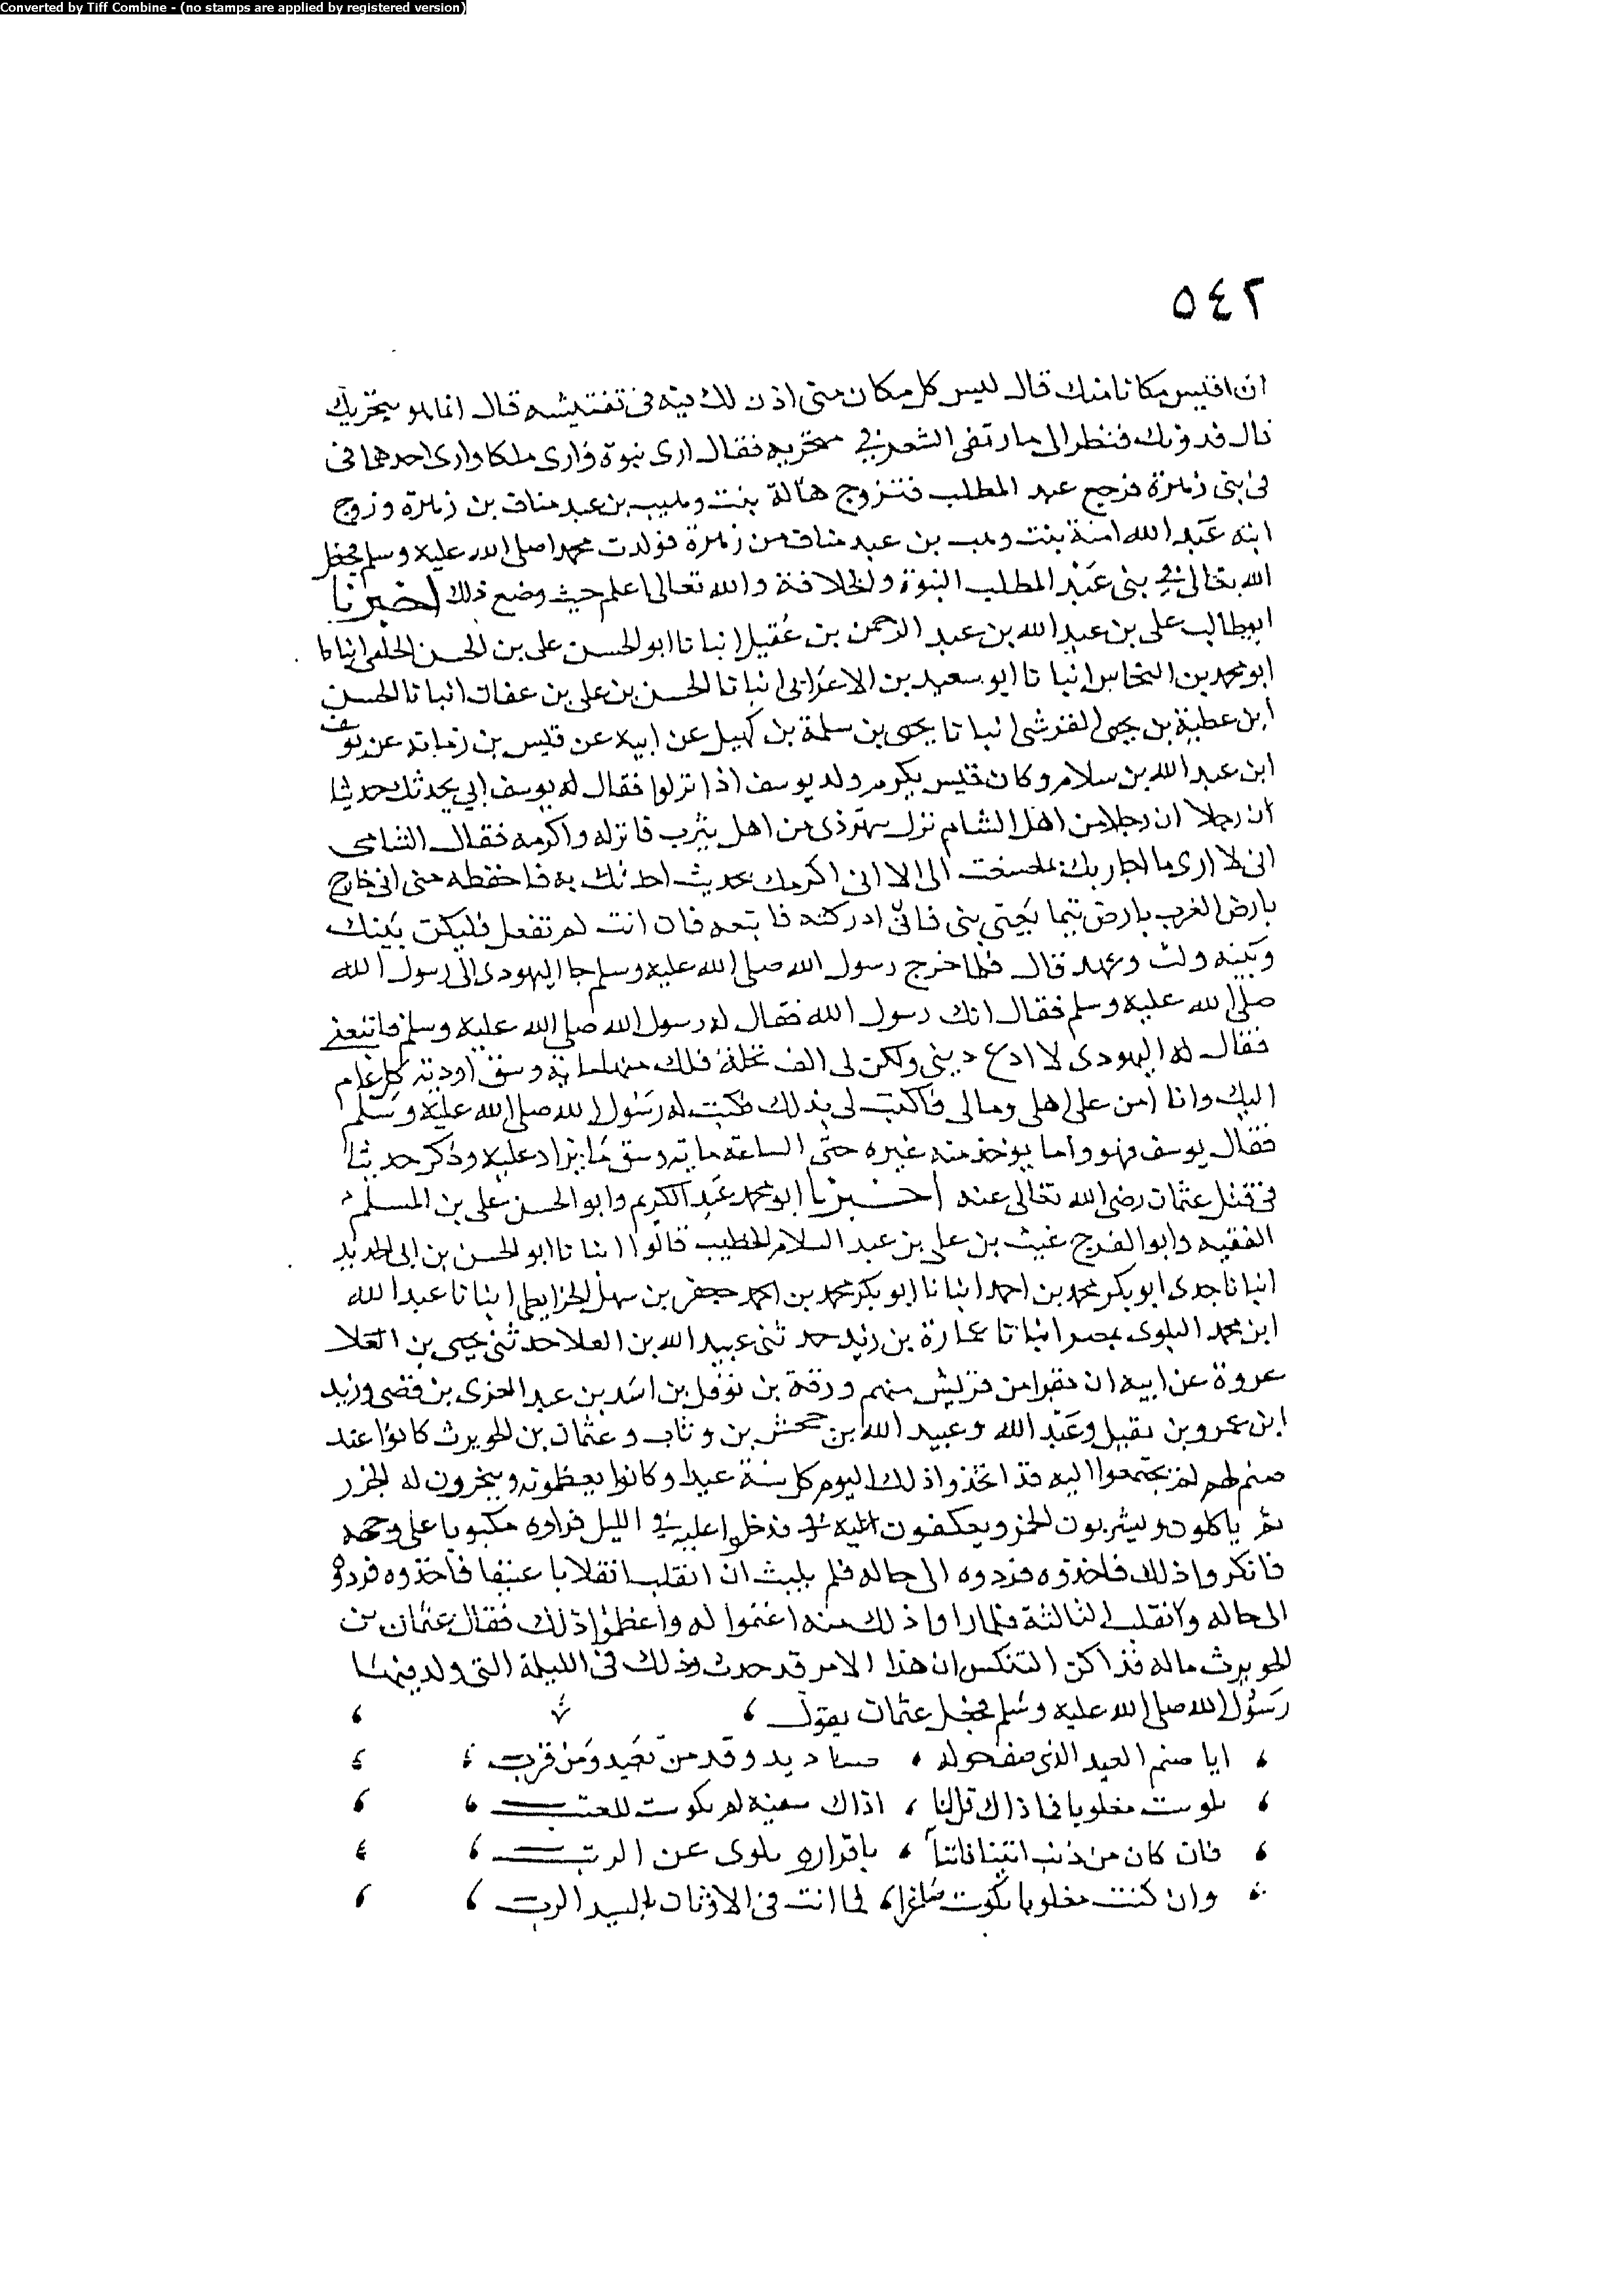 Converted by Tiff Combine - (no stamps are applied by registered version)
٥٤٢
ان اقليس مكانا منك قال ليس كل مكان منى اذن لك فيه فى تفتيشه قال انما هو منخريك
قال فدونك فنظر الى مارتفى الشعر في منخريه فقال ارى نبوة وارى ملكا وارى احدهما فى
فى بنى زهرة فرجع عبد المطلب فتزوج هالة بنت وهيب بن عبد مناف بن زهرة وزوج
ابنه عبد الله امنة بنت وهب بن عبد مناف من زهرة فولدت محمدا صلى الله عليه وسلم فجعل
الله تعالى في بنى عبد المطلب النبوة والخلافة والله تعالى اعلم حيث وضع ذلك اخبرنا
ابوطالب على بن عبد الله بن عبد الرحمن بن عقيل انبا نا ابو الحسن على بن الحسن الخلعى انبانا
ابو محمد بن النحاس انبا نا ابو سعيد بن الاعرابى انبا نا الحسن بن على بن عفان انبا نا الحسن
ابن عطية بن يحيى القرشى انبا نا يحيى بن سلمة بن كهيل عن ابيه عن قيس بن زمانه عن يوسف
ابن عبد الله بن سلام وكان قيس يكرم ولد يوسف اذا نزلوا فقال له يوسف انى يحدثك حديثا
ان رجلا ان رجلا من اهل الشام نزل بيهودى من اهل يثرب فانزله واكرمه فقال الشامى
انى لا ارى ما اجاربك الى الا انى اكرمك بحديث احدثك به فاحفظه منى انى خارج
بارض العرب بارض تيما يجئ نبى فانى ادركته فاتبعه فان انت لم تفعل فليكن بينك
وبينه ولث وعهد قال فلما خرج رسول الله صلى الله عليه وسلم جا اليهودى الى رسول الله
صلى الله عليه وسلم فقال انك رسول الله فقال له رسول الله صلى الله عليه وسلم فاتبعنى
فقال له اليهودى لا ادع دينى ولكن لى الف نخلة فلك منها ماية وسق اوديته كل عام
اليك وانا امن على اهلى ومالى فاكتب لى بذلك فكتب له رسول الله صلى الله عليه وسلم
فقال يوسف فهو واما يوخذ منه غيره حتى الساعة ماية وسق ما يزاد عليه وذكر حديثا
فى قتل عثمان رضى الله تعالى عنه اخبرنا ابو محمد عبد الكريم وابو الحسن على بن المسلم
الفقيه وابو الفرج غيث بن على بن عبد السلام الخطيب قالوا انبا نا ابو الحسن بن ابى الحديد
انبا نا جدى ابو بكر محمد بن احمد انبا نا ابو بكر محمد بن احمد جعفر بن سهل الخرايطى انبا نا عبد الله
ابن محمد البلوى بمصر انبا نا عمارة بن زيد حد ثنى عبيد الله بن العلا حد ثنى يحيى بن العلا
عروة عن ابيه ان نفرا من قريش منهم ورقة بن نوفل بن اسد بن عبد العزى بن قصى وزيد
ابن عمرو بن نفيل وعبد الله وعبيد الله بن جحش بن وثاب وعثمان بن الحويرث كانوا عند
صنم لهم يجتمعوا اليه قد اتخذوا ذلك اليوم كل سنة عيدا وكانوا يعظمونه وينحرون له الجزر
ثم ياكلون ويشربون الخمر ويعكفون عليه فدخلوا عليه في الليل فراوه مكبوبا على وجهه
فانكروا ذلك فاخذوه فردوه الى حاله فلم يلبث ان انقلب انقلابا عنيفا فاخذوه فردوه
الى حاله وانقلب الثالثة فلما راوا ذلك منه اغتموا له واعظموا ذلك فقال عثمان بن
الحويرث ماله قد اكثر التنكس ان هذا الامر قد حدث وذلك فى الليلة التى ولد فيها
رسول الله صلى الله عليه وسلم فجعل عثمان يقول
ايا صنم العيد الذى صف حوله ، صناديد وفد من بعيد ومن قرب
مغلوبا فما ذاك قل لنا ، اذاك
فان كان من ذنب اتينا فاننا ، باقرار عن الرب
وان كنت مغلوبا صاغرا ، فما انت فى الاوثان بالسيد الرب